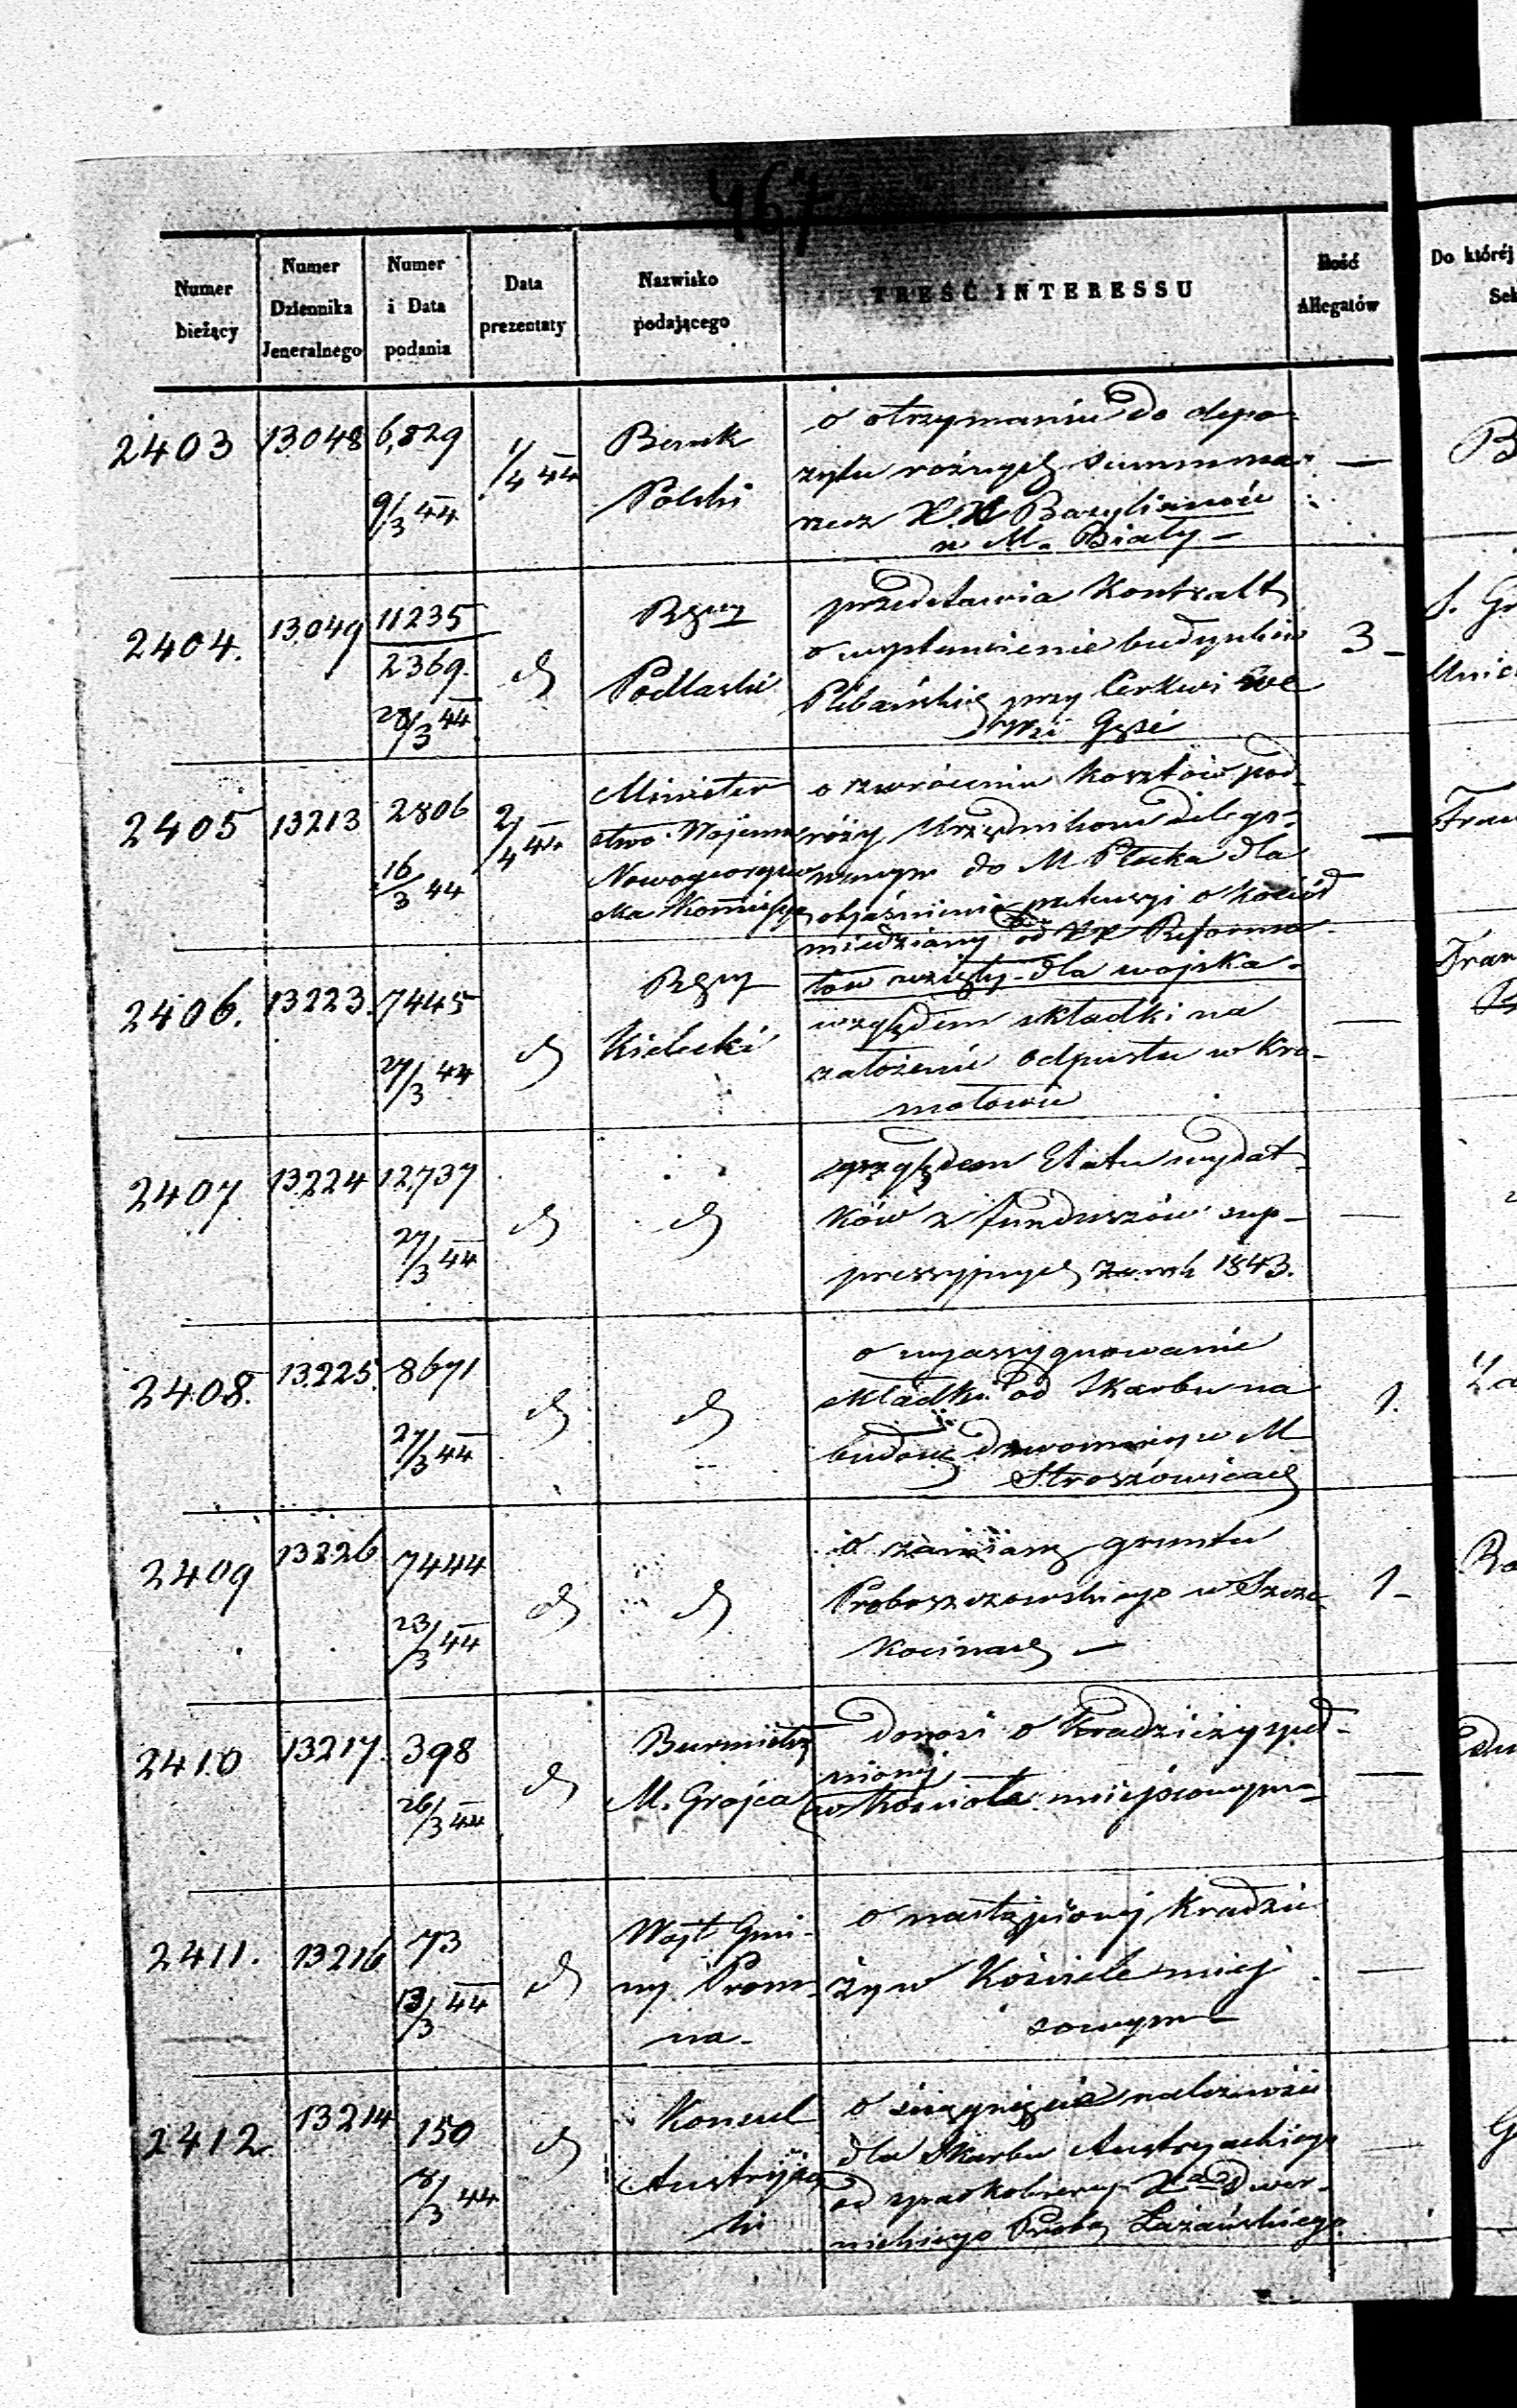 467
Numer bieżący
Numer Dziennika Jeneralnego
Numer i Data podania
Data prezentaty
Nazwisko podającego
TREŚĆ INTERESSU
Ilość Allegatów
Do której
2403 13048 6,829 9/3 44 1/4 44
Bank
Polski
o otrzymaniu do depo-
zytu różnych summ na
rzecz XX Bazylianów
w M. Biały —
—
2404. 13049 11235
2369.
28/3 44
Podlaski
przedstawia Kontrakt
o wystawienie budynków
Plebańskich przy Cerkwi we
Wsi Gęsi
3 —
2405 13213 2806
16/3 44
2/4 44
Minister
stwo Wojenne
Nowogeorgiew
ska Kommissya
o zwróceniu kosztów pod
róży Urzędnikom delego-
wanym do M Płocka dla
objaśnienia pretensyi o kocioł
miedziany od XX Reforma-
tów wzięty dla wojska.
—
2406. 13223. 7445
27/3 44
Kielecki
względem składki na
założenie odpustu w Kro-
motowie
—
2407 13224 12737
27/3 44
względem Etatu wydat-
ków z funduszów sup-
pressyjnych za rok 1843.
—
2408. 13225. 8671
27/3 44
o wyassygnowanie
składki od Skarbu na
budowę dzwonnicy w M
Stroszowicach
1.
2409 13226 7444
23/3 44
o zamianę gruntu
Proboszczowskiego w Szcze-
kocinach —
1 —
2410 13217. 398
26/3 44
Burmistrz
M. Grojca
donosi o Kradzieży speł-
nionej
w kościele miejscowym —
—
2411. 13216 73
13/3 44
Wójt Gmi-
ny Prom-
na —
o nastąpionej Kradzie
ży w Kościele miej
scowym —
—
2412 13214 150
8/3 44
Konsul
Austryjac
ki
o ściągnięcie należności
dla Skarbu Austryackiego
Łazańskiego